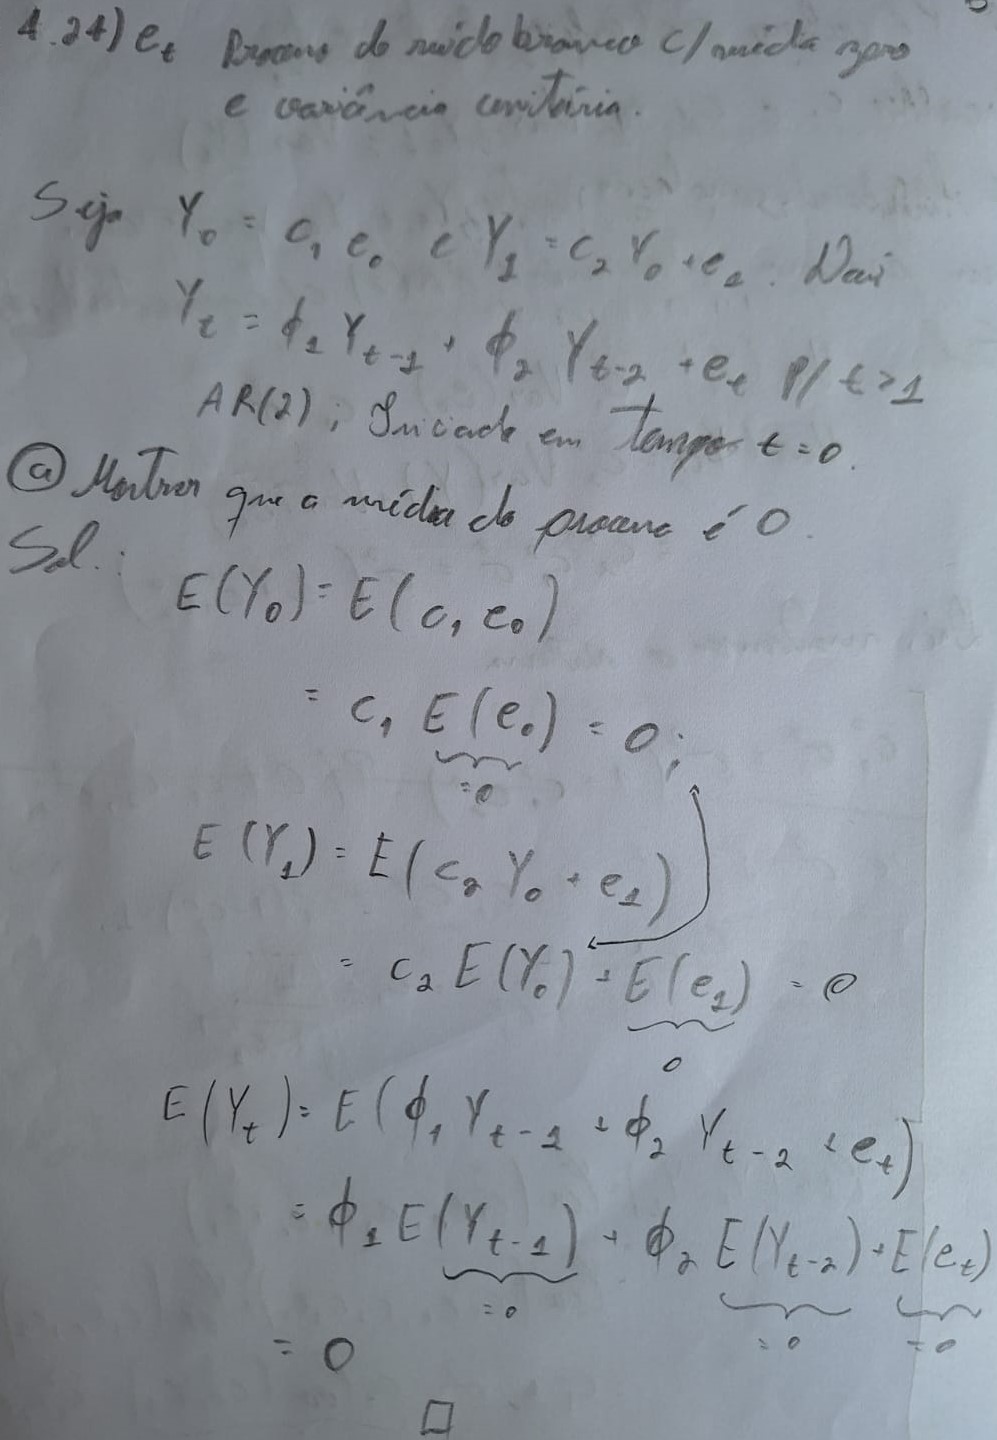 4.24) e_t Processo do ruído branco c/ média zero
e variância unitária.
Seja Y_0 = c_1 e_0 e Y_1 = c_2 Y_0 + e_1. Daí
Y_t = ϕ_1 Y_{t-1} + ϕ_2 Y_{t-2} + e_t p/ t > 1
AR(2); Iniciado em tempo t = 0.
(a) Mostrar que a média do processo é 0.
Sol.:
E(Y_0) = E(c_1 e_0)
= c_1 E(e_0) = 0;
= 0
E(Y_1) = E(c_2 Y_0 + e_1)
= c_2 E(Y_0) + E(e_1) = 0
0
E(Y_t) = E(ϕ_1 Y_{t-1} + ϕ_2 Y_{t-2} + e_t)
= ϕ_1 E(Y_{t-1}) + ϕ_2 E(Y_{t-2}) + E(e_t)
= 0 = 0 = 0
= 0
□